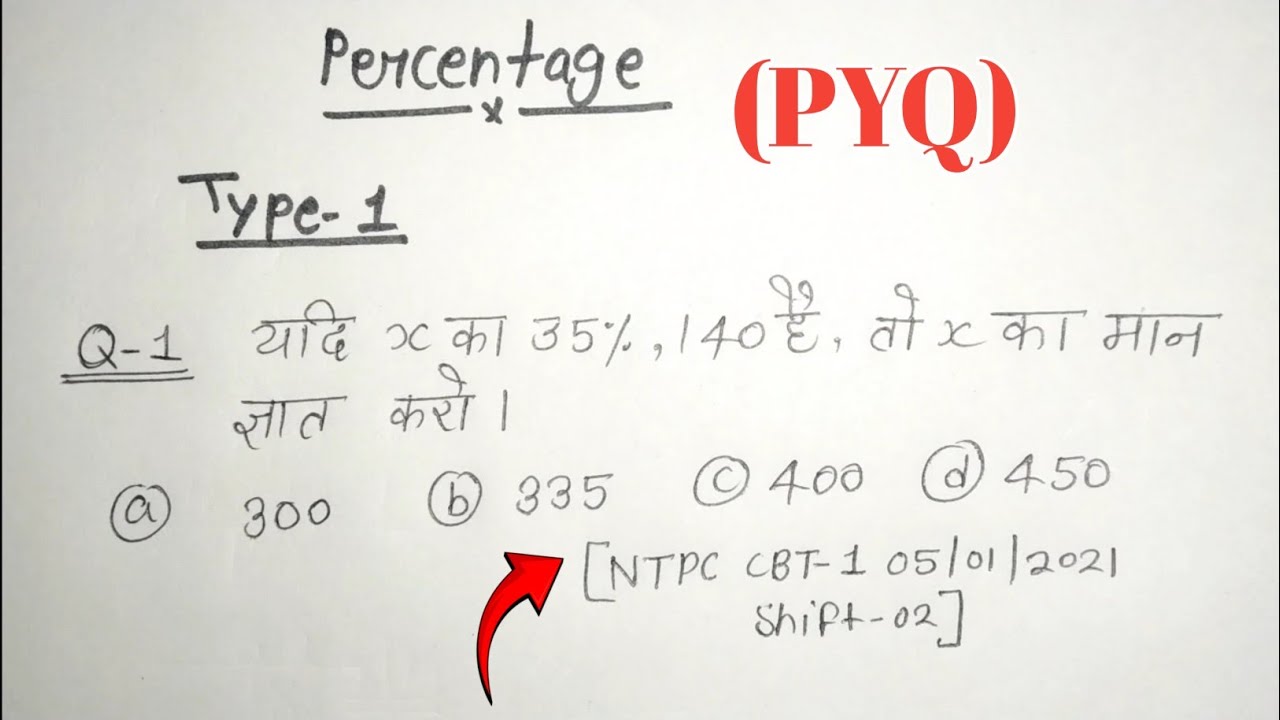 Percentage
(PYQ)
x
Type-1
Q-1 यदि x का 35%, 140 है, तो x का मान
ज्ञात करो।
ⓐ 300 ⓑ 335 ⓒ 400 ⓓ 450
[NTPC CBT-1 05/01/2021
Shift-02]